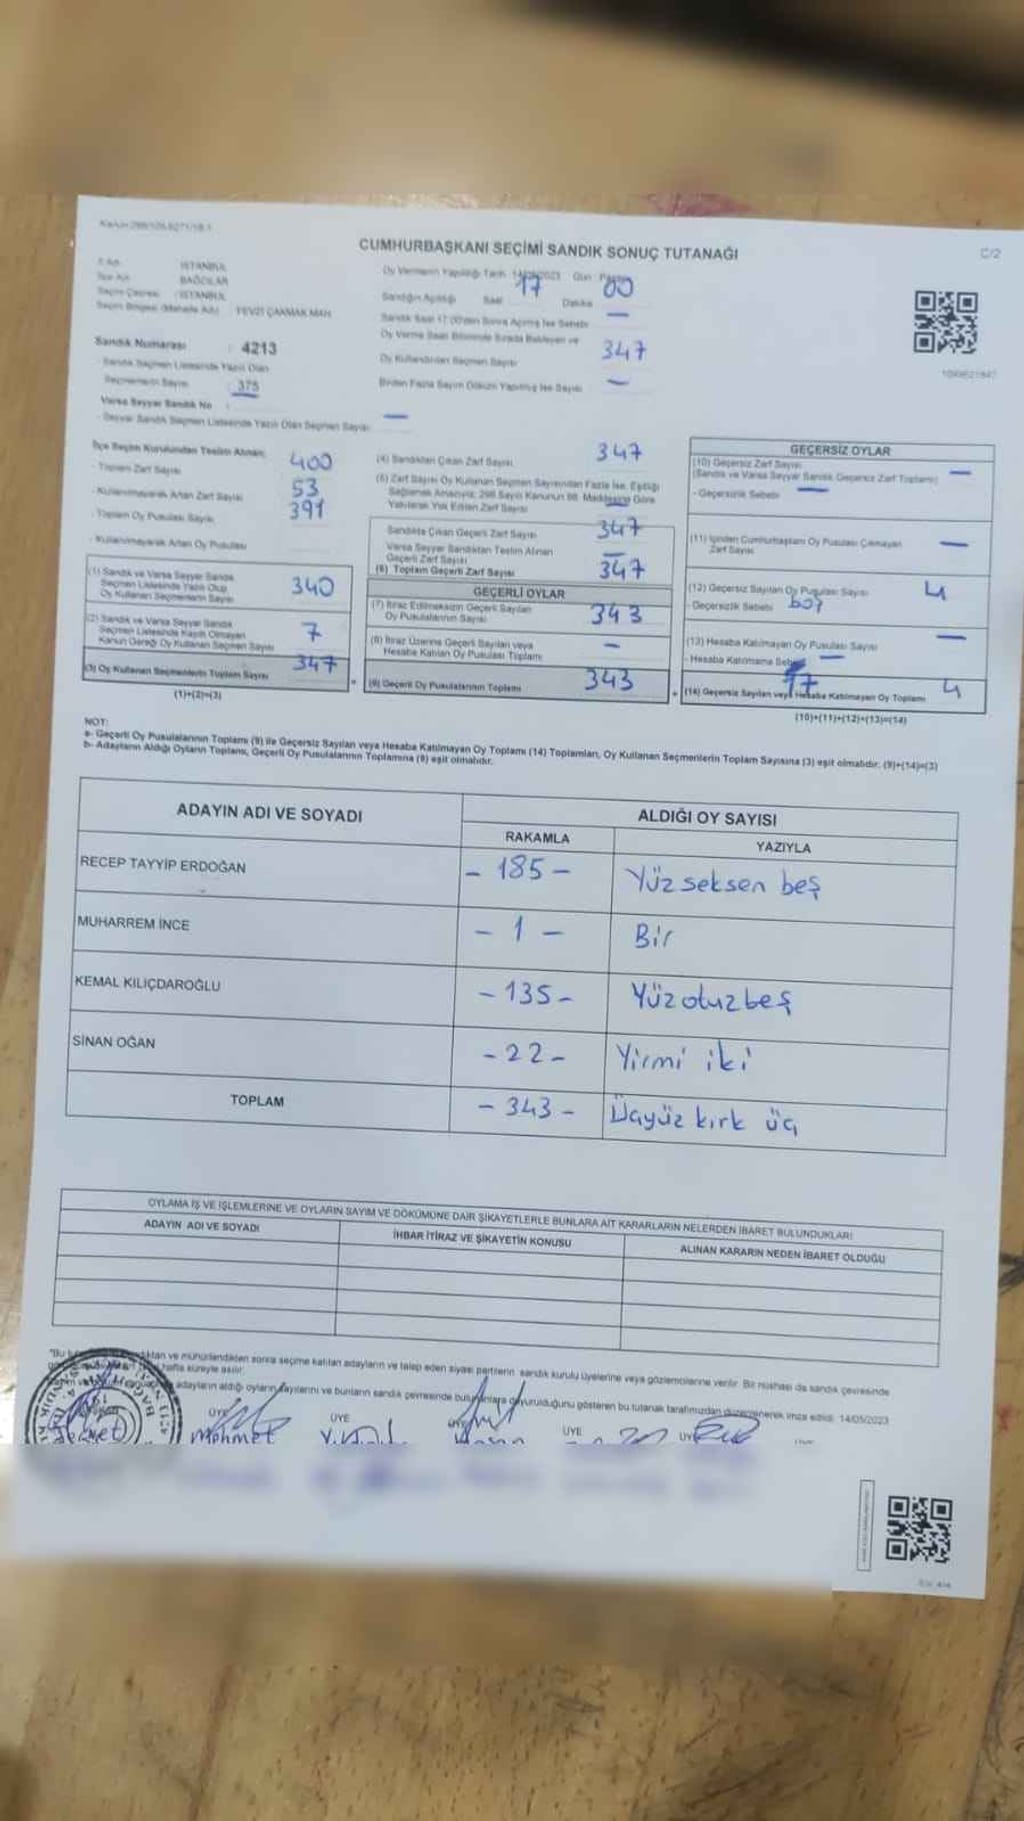 CUMHURBAŞKANI SEÇİMİ SANDIK SONUÇ TUTANAĞI
C/2
İSTANBUL
BAĞCILAR
İSTANBUL
FEVZİ ÇAKMAK MAH.
Oy Vermenin Yapıldığı Tarih 14/05/2023 Gün : Pazar
Sandığın Açıldığı Saat 17 Dakika 00
Sandık Saat 17.00'den Sonra Açılmış İse Sebebi —
Oy Verme Saati Bitiminde Sırada Bekleyen ve
Oy Kullandırılan Seçmen Sayısı 347
Birden Fazla Sayım Döküm Yapılmış İse Sayısı —
Sandık Numarası : 4213
Sandık Seçmen Listesinde Yazılı Olan
Seçmenlerin Sayısı : 375
Varsa Seyyar Sandık No :
- Seyyar Sandık Seçmen Listesinde Yazılı Olan Seçmen Sayısı —
İlçe Seçim Kurulundan Teslim Alınan;
- Toplam Zarf Sayısı 400
- Kullanılmayarak Artan Zarf Sayısı 53
- Toplam Oy Pusulası Sayısı 391
- Kullanılmayarak Artan Oy Pusulası
(1) Sandık ve Varsa Seyyar Sandık
Seçmen Listesinde Yazılı Olup
Oy Kullanan Seçmenlerin Sayısı 340
(2) Sandık ve Varsa Seyyar Sandık
Seçmen Listesinde Kayıtlı Olmayan
Kanun Gereği Oy Kullanan Seçmen Sayısı 7
(3) Oy Kullanan Seçmenlerin Toplam Sayısı 347
(1)+(2)=(3)
(4) Sandıktan Çıkan Zarf Sayısı 347
(5) Zarf Sayısı Oy Kullanan Seçmen Sayısından Fazla İse, Eşitliği
Sağlamak Amacıyla; 298 Sayılı Kanunun 98. Maddesine Göre
Yakılarak Yok Edilen Zarf Sayısı —
Sandıkta Çıkan Geçerli Zarf Sayısı 347
Varsa Seyyar Sandıktan Teslim Alınan
Geçerli Zarf Sayısı —
(6) Toplam Geçerli Zarf Sayısı 347
GEÇERLİ OYLAR
(7) İtiraz Edilmeksizin Geçerli Sayılan
Oy Pusulalarının Sayısı 343
(8) İtiraz Üzerine Geçerli Sayılan veya
Hesaba Katılan Oy Pusulası Toplamı —
(9) Geçerli Oy Pusulalarının Toplamı 343
GEÇERSİZ OYLAR
(10) Geçersiz Zarf Sayısı —
(Sandık ve Varsa Seyyar Sandık Geçersiz Zarf Toplamı)
- Geçersizlik Sebebi —
(11) İçinden Cumhurbaşkanı Oy Pusulası Çıkmayan
Zarf Sayısı —
(12) Geçersiz Sayılan Oy Pusulası Sayısı 4
- Geçersizlik Sebebi boş
(13) Hesaba Katılmayan Oy Pusulası Sayısı —
- Hesaba Katılmama Sebebi —
(14) Geçersiz Sayılan veya Hesaba Katılmayan Oy Toplamı 4
(10)+(11)+(12)+(13)=(14)
NOT:
a- Geçerli Oy Pusulalarının Toplamı (9) ile Geçersiz Sayılan veya Hesaba Katılmayan Oy Toplamı (14) Toplamları, Oy Kullanan Seçmenlerin Toplam Sayısına (3) eşit olmalıdır. (9)+(14)=(3)
b- Adayların Aldığı Oyların Toplamı, Geçerli Oy Pusulalarının Toplamına (9) eşit olmalıdır.
ADAYIN ADI VE SOYADI
ALDIĞI OY SAYISI
RAKAMLA YAZIYLA
RECEP TAYYİP ERDOĞAN - 185 - Yüz seksen beş
MUHARREM İNCE - 1 - Bir
KEMAL KILIÇDAROĞLU - 135 - Yüzotuzbeş
SİNAN OĞAN - 22 - Yirmi iki
TOPLAM - 343 - Üçyüz kırk üç
OYLAMA İŞ VE İŞLEMLERİNE VE OYLARIN SAYIM VE DÖKÜMÜNE DAİR ŞİKAYETLERLE BUNLARA AİT KARARLARIN NELERDEN İBARET BULUNDUKLARI
ADAYIN ADI VE SOYADI İHBAR İTİRAZ VE ŞİKAYETİN KONUSU ALINAN KARARIN NEDEN İBARET OLDUĞU
ve mühürlendikten sonra seçime katılan adayların ve talep eden siyasi partilerin sandık kurulu üyelerine veya gözlemcilerine verilir. Bir nüshası da sandık çevresinde
hafta süreyle asılır.
adayların aldığı oyların sayılarını ve bunların sandık çevresinde bulunanlara duyurulduğunu gösteren bu tutanak tarafımızdan düzenlenerek imza edildi. 14/05/2023
ÜYE ÜYE ÜYE ÜYE
Mehmet